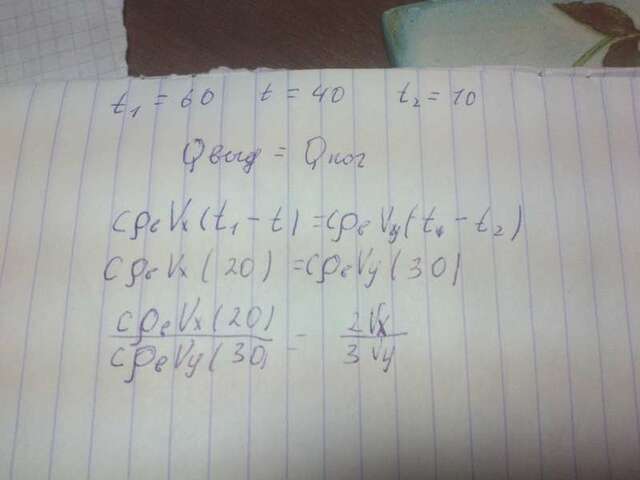 t₁ = 60 t = 40 t₂ = 10
Qвыд = Qпог
cρвVx(t₁ - t) = cρвVy(t - t₂)
cρвVx(20) = cρвVy(30)
cρвVx(20) / cρвVy(30) = 2Vx / 3Vy